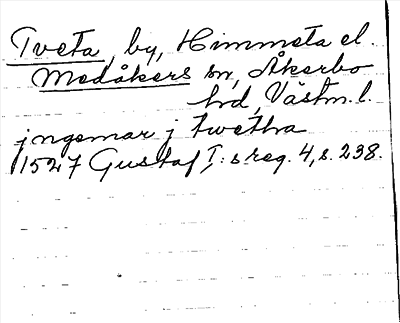 Tveta, by, Himmeta el.
Medåkers sn, Åkerbo
hd, Västm. l.
jngemar j twetha
1527 Gustaf I:s reg. 4, s. 238.